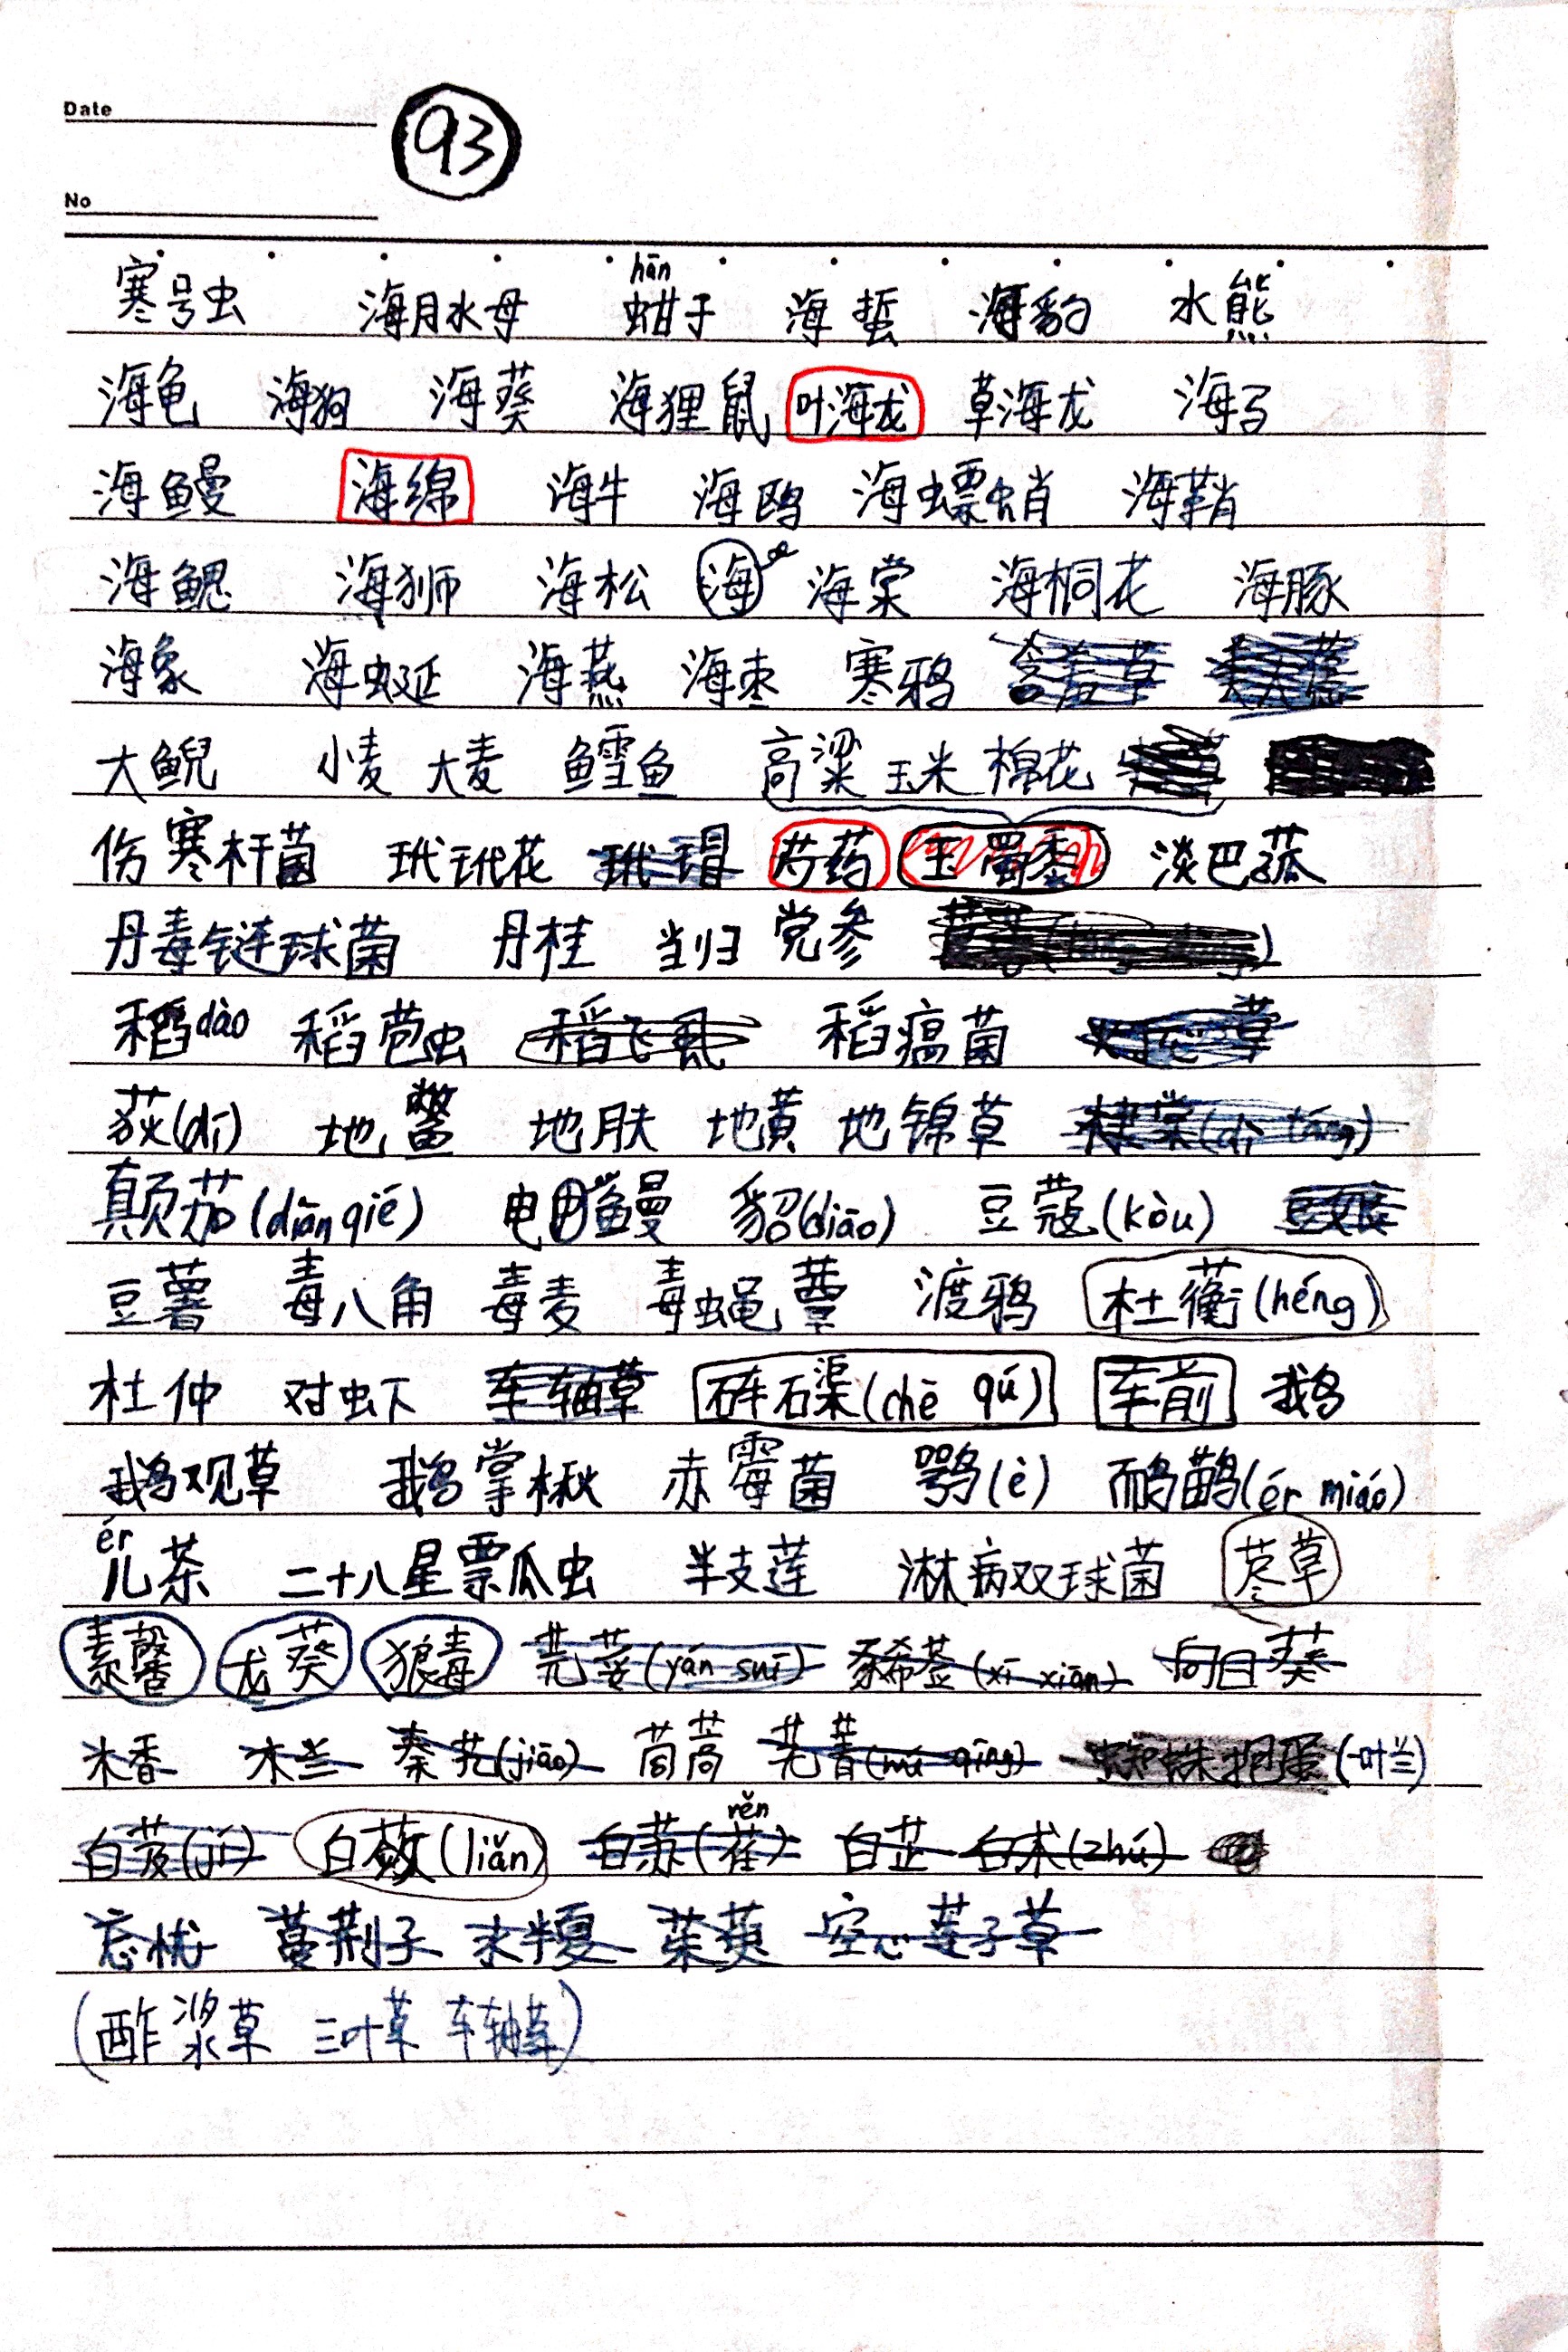 Date
93
No
寒号虫 海月水母 蚶hān子 海蜇 海豹 水熊
海龟 海狗 海葵 海狸鼠 叶海龙 草海龙 海马
海鳗 海绵 海牛 海鸥 海螵蛸 海鞘
海鳃 海狮 海松 海 海棠 海桐花 海豚
海象 海蜒 海燕 海枣 寒鸦 含羞草
大鲵 小麦 大麦 鳕鱼 高粱 玉米 棉花
伤寒杆菌 玳玳花 玳瑁 芍药 玉蜀黍 淡巴菰
丹毒链球菌 丹桂 当归 党参
稻dào 稻苞虫 稻飞虱 稻瘟菌
荻(dí) 地鳖 地肤 地黄 地锦草 棣棠(dì táng)
颠茄(diān qié) 电鳗 貂(diāo) 豆蔻(kòu) 豆娘
豆薯 毒八角 毒麦 毒蝇蕈 渡鸦 杜蘅(héng)
杜仲 对虾 车轴草 砗磲(chē qú) 车前 鹅
鹅观草 鹅掌楸 赤霉菌 鹗(è) 鸸鹋(ér miáo)
儿ér茶 二十八星瓢瓜虫 半支莲 淋病双球菌 荩草
素馨 龙葵 狼毒 芫荽(yán suī) 豨莶(xī xiān) 向日葵
木香 木兰 秦艽(jiāo) 茼蒿 芜菁(wú qīng) 蜘蛛抱蛋(一叶兰)
白芨(jī) 白蔹(liǎn) 白苏(荏rěn) 白芷 白术(zhú)
忘忧 蔓荆子 水半夏 茱萸 空心莲子草
(酢浆草 三叶草 车轴草)